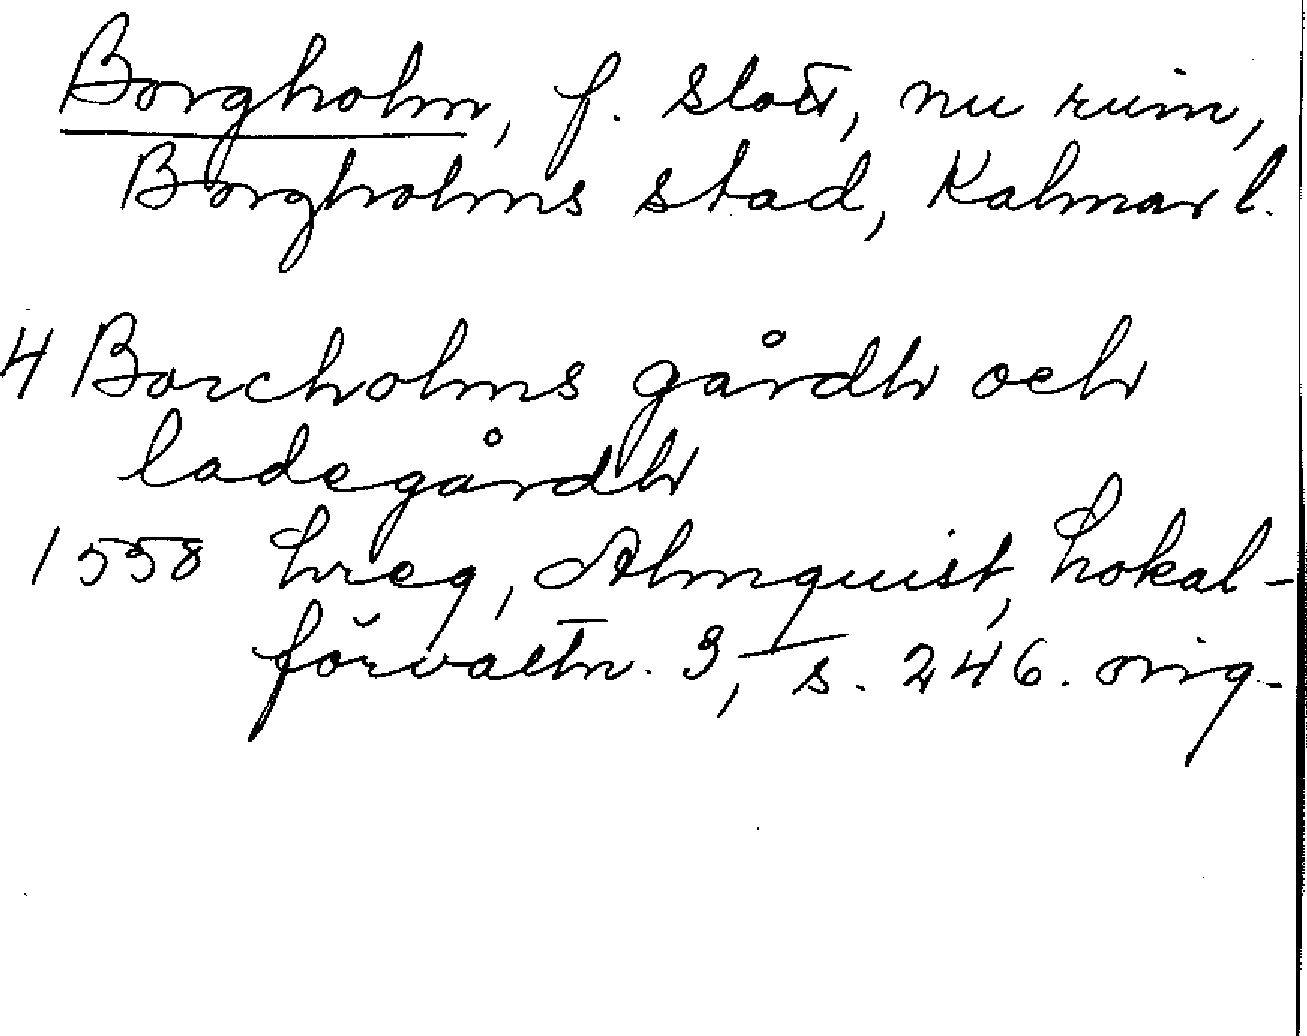 Borgholm, f. slott, nu ruin,
Borgholms stad, Kalmar l.
4 Borcholms gårdh och
ladegårdh
1558 Lreg, Almquist, Lokal-
förvaltn. 3, s. 246. orig.